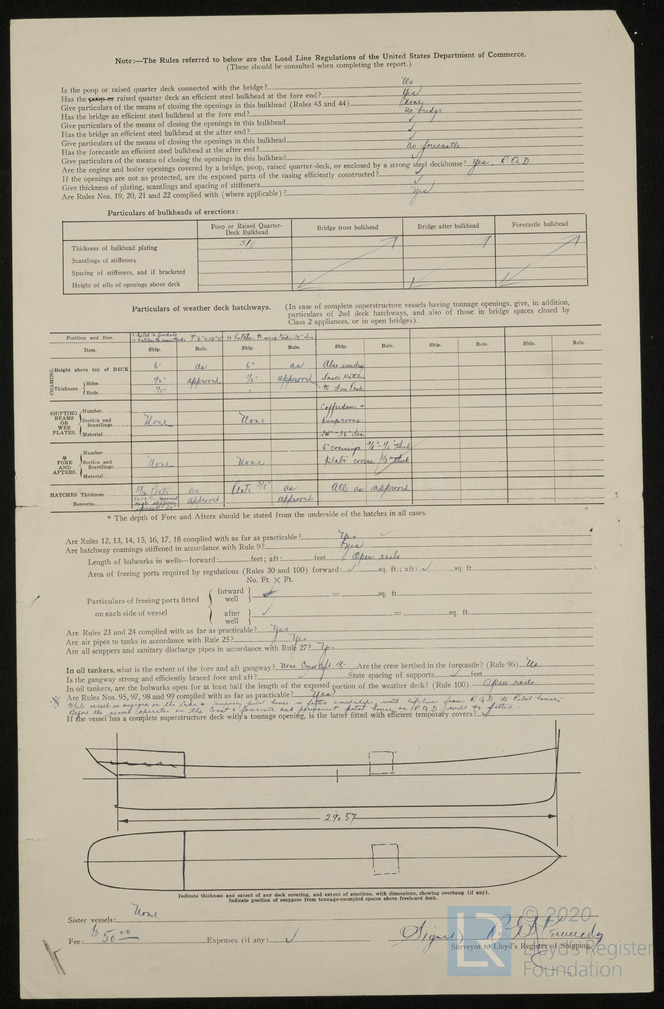 Note:—The Rules referred to below are the Load Line Regulations of the United States Department of Commerce.
(These should be consulted when completing the report.)
Is the poop or raised quarter deck connected with the bridge? No
Has the poop or raised quarter deck an efficient steel bulkhead at the fore end? Yes
Give particulars of the means of closing the openings in this bulkhead (Rules 43 and 44) None
Has the bridge an efficient steel bulkhead at the fore end? No bridge
Give particulars of the means of closing the openings in this bulkhead ✓
Has the bridge an efficient steel bulkhead at the after end? ✓
Give particulars of the means of closing the openings in this bulkhead ✓
Has the forecastle an efficient steel bulkhead at the after end? No forecastle
Give particulars of the means of closing the openings in this bulkhead ✓
Are the engine and boiler openings covered by a bridge, poop, raised quarter-deck, or enclosed by a strong steel deckhouse? Yes. R.Q.D.
If the openings are not so protected, are the exposed parts of the casing efficiently constructed? ✓
Give thickness of plating, scantlings and spacing of stiffeners ✓
Are Rules Nos. 19, 20, 21 and 22 complied with (where applicable)? Yes
Particulars of bulkheads of erections:
Poop or Raised Quarter-Deck Bulkhead Bridge front bulkhead Bridge after bulkhead Forecastle bulkhead
Thickness of bulkhead plating
Scantlings of stiffeners
Spacing of stiffeners, and if bracketed
Height of sills of openings above deck
Particulars of weather deck hatchways. (In case of complete superstructure vessels having tonnage openings, give, in addition,
particulars of 2nd deck hatchways, and also of those in bridge spaces closed by
Class 2 appliances, or in open bridges).
Position and Size.
Item. Ship. Rule. Ship. Rule. Ship. Rule. Ship. Rule.
COAMING Height above top of DECK 6" as 6" as Also sundry
Thickness Sides 1/2" approved 1/2" approved Small Hatches
Ends 1/2" to Fore Peak
SHIFTING BEAMS OR WEB PLATES. Number Cofferdams +
Section and Scantlings None None Pumprooms
Material
FORE AND AFTERS. Number 6" coamings
Section and Scantlings None None Plate covers
Material
HATCHES Thickness as as All as approved
Remarks approved approved
* The depth of Fore and Afters should be stated from the underside of the hatches in all cases.
Are Rules 12, 13, 14, 15, 16, 17, 18 complied with as far as practicable? Yes
Are hatchway coamings stiffened in accordance with Rule 9? Yes
Length of bulwarks in wells—forward: feet; aft: feet. Open rails
Area of freeing ports required by regulations (Rules 30 and 100) forward: ✓ sq. ft.; aft: ✓ sq. ft
No. Ft. × Ft.
Particulars of freeing ports fitted forward well = sq. ft
on each side of vessel after well ✓ = sq. ft
Are Rules 23 and 24 complied with as far as practicable? Yes
Are air pipes to tanks in accordance with Rule 25? Yes
Are all scuppers and sanitary discharge pipes in accordance with Rule 27? Yes
In oil tankers, what is the extent of the fore and aft gangway? None Are the crew berthed in the forecastle? (Rule 96) No
Is the gangway strong and efficiently braced fore and aft? ✓ State spacing of supports ✓ feet
In oil tankers, are the bulwarks open for at least half the length of the exposed portion of the weather deck? (Rule 100) Open rails
Are Rules Nos. 95, 97, 98 and 99 complied with as far as practicable? Yes
If the vessel has a complete superstructure deck with a tonnage opening, is the latter fitted with efficient temporary covers? ✓
290.57
Indicate thickness and extent of any deck covering, and extent of erections, with dimensions, showing overhang (if any).
Indicate position of scuppers from tonnage-exempted spaces above freeboard deck.
Sister vessels: None
Fee: $50.00 Expenses (if any) ✓ Signed
Surveyor to Lloyd's Register of Shipping.
© 2020
LR Lloyd's Register
Foundation